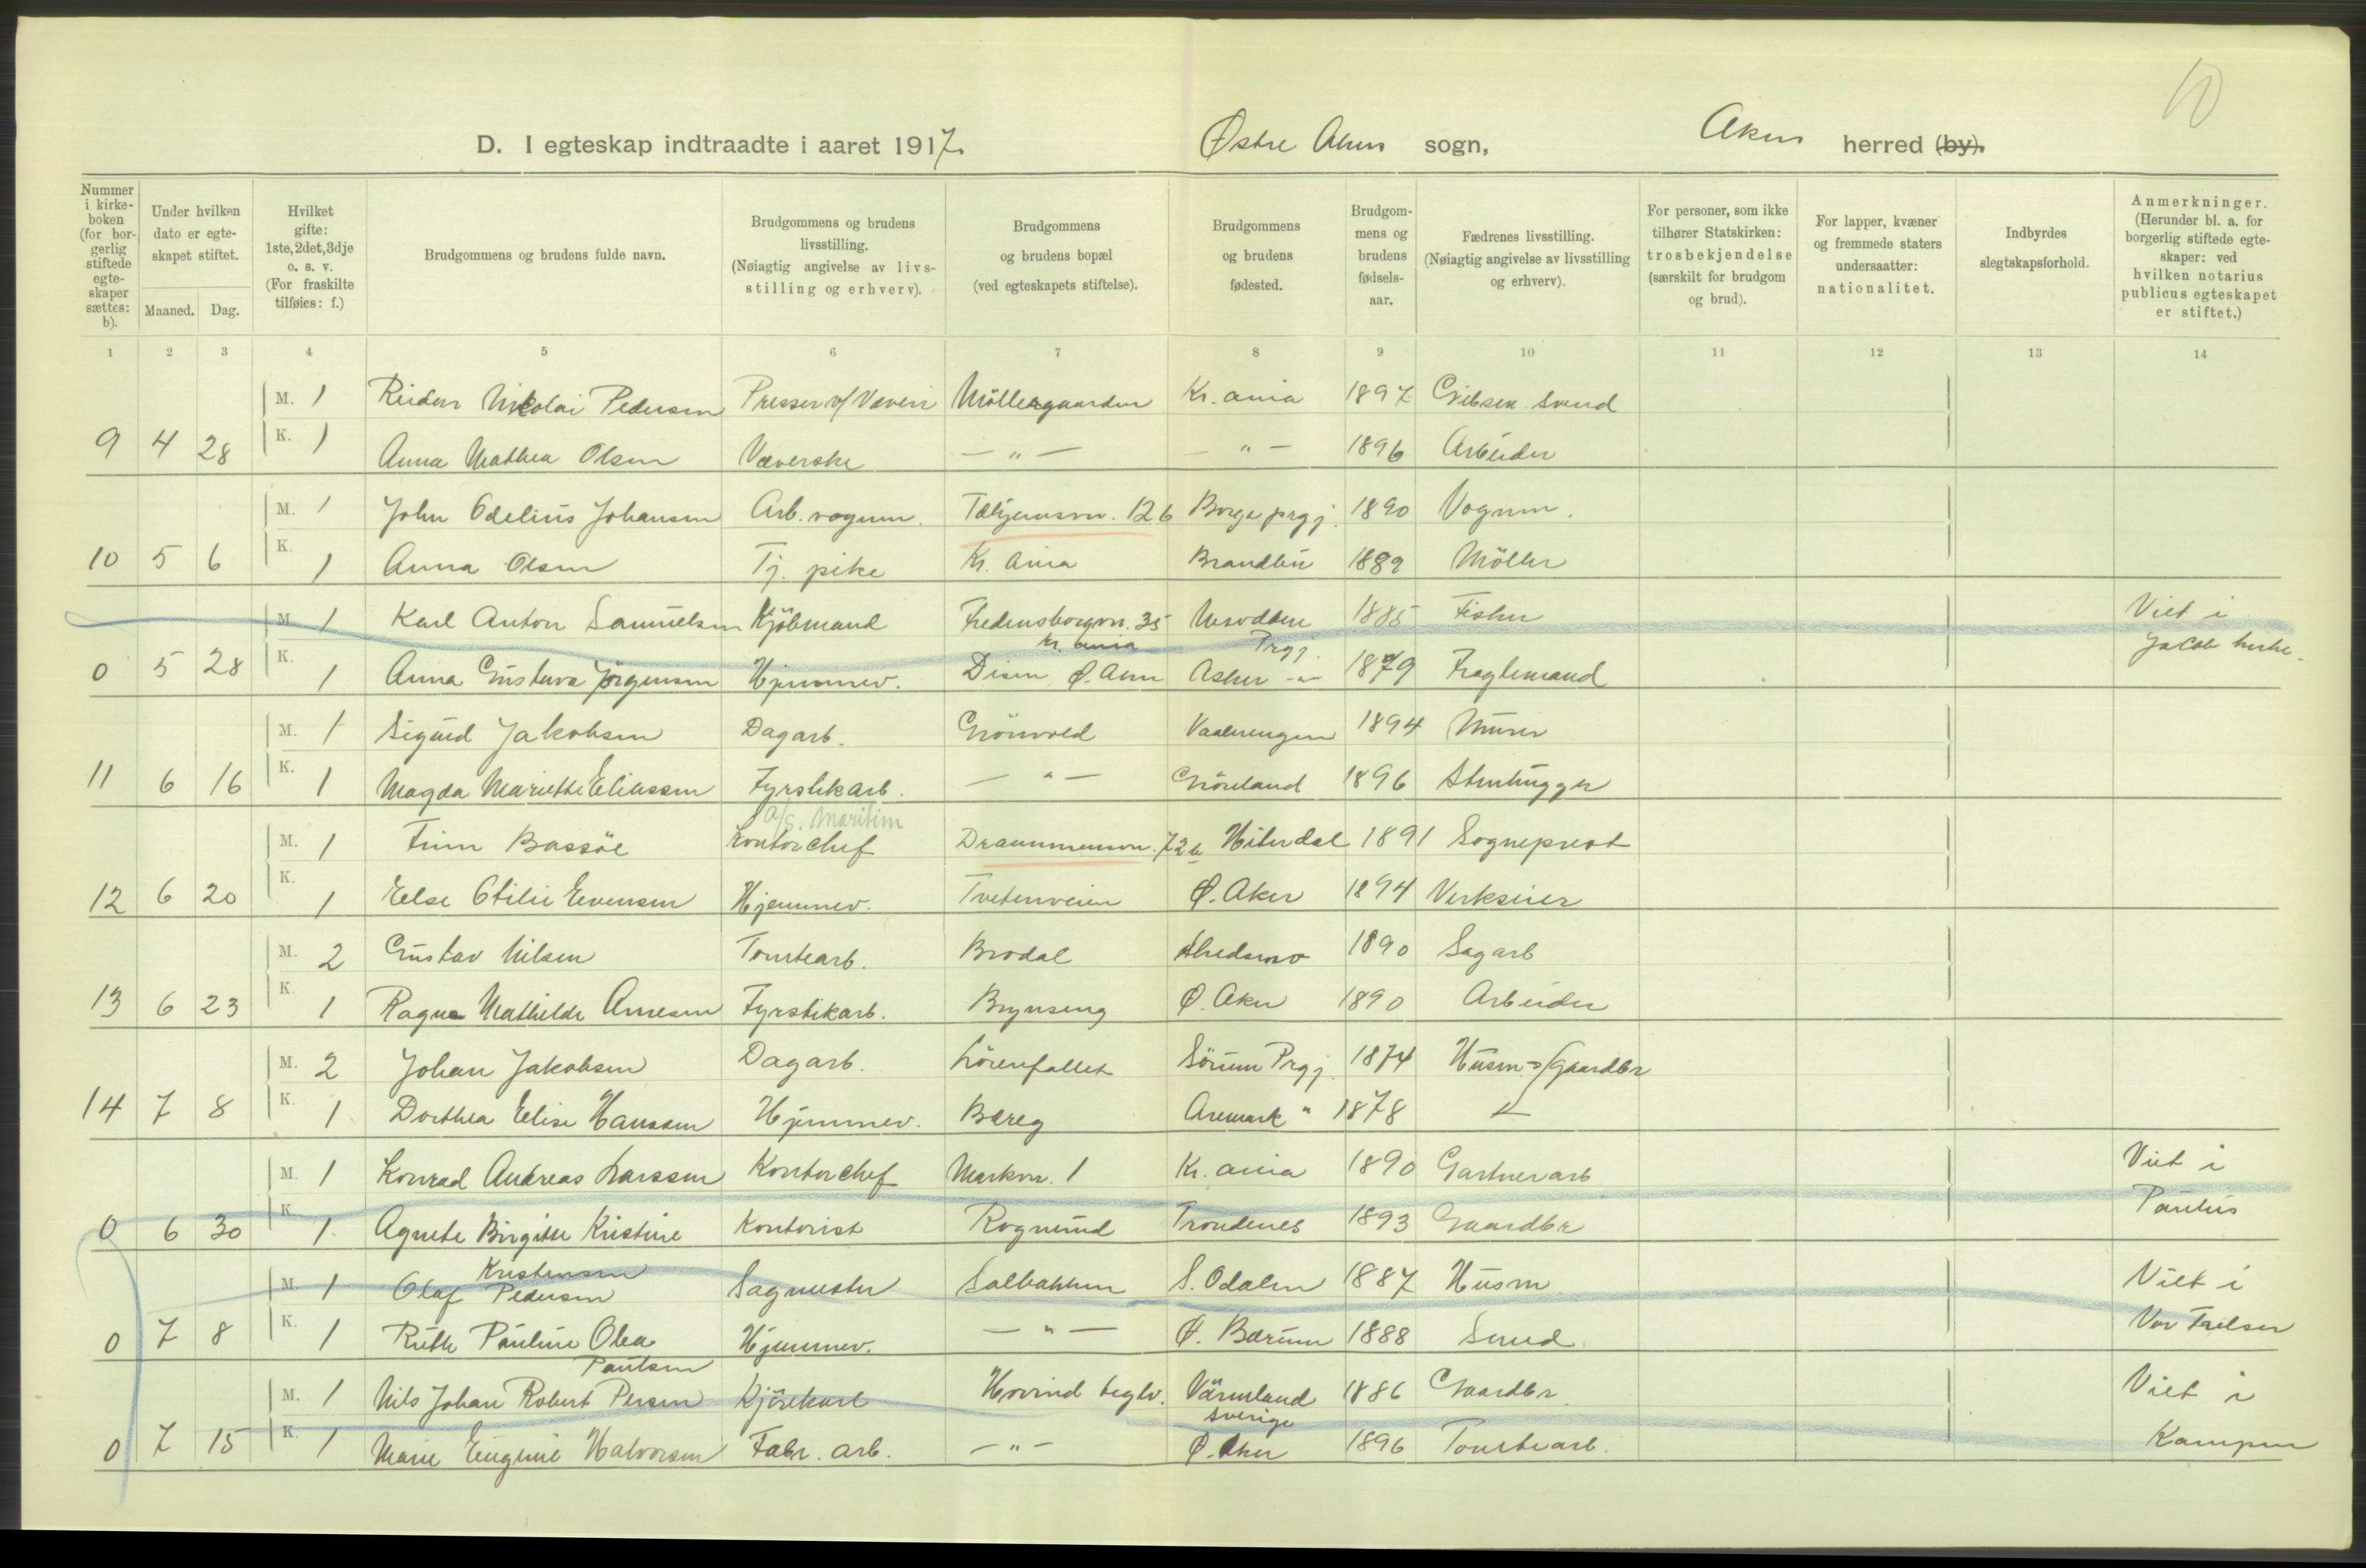 10
D. I egteskap indtraadte i aaret 1917. Østre Akers sogn, Akers herred (by).
Nummer i kirkeboken (for borgerlig stiftede egteskaper sættes: b).
Under hvilken dato er egteskapet stiftet.
Maaned. Dag.
Hvilket gifte: 1ste, 2det, 3dje o. s. v. (For fraskilte tilføies: f.)
Brudgommens og brudens fulde navn.
Brudgommens og brudens livsstilling. (Nøiagtig angivelse av livsstilling og erhverv).
Brudgommens og brudens bopæl (ved egteskapets stiftelse).
Brudgommens og brudens fødested.
Brudgommens og brudens fødselsaar.
Fædrenes livsstilling. (Nøiagtig angivelse av livsstilling og erhverv).
For personer, som ikke tilhører Statskirken: trosbekjendelse (særskilt for brudgom og brud).
For lapper, kvæner og fremmede staters undersaatter: nationalitet.
Indbyrdes slegtskapsforhold.
Anmerkninger. (Herunder bl. a. for borgerlig stiftede egteskaper: ved hvilken notarius publicus egteskapet er stiftet.)
1 2 3 4 5 6 7 8 9 10 11 12 13 14
M. 1 Reidar Nikolai Pedersen Presser v/ Væveri Möllergaarden Kr.ania 1897 Gibsen svend
9 4 28 K. 1 Anna Mathea Olsen Væverske — " — — " — 1896 Arbeider
M. 1 John Odelius Johansen Arb. vognm. 126 Borge prgj. 1890 Vognm.
10 5 6 K. 1 Anna Olsen Tj. pike Kr. ania Brandbu 1889 Möller
M. 1 Karl Anton Samuelsen Kjöbmand Fredensborgvn. 35 Nesodden 1885 Fisker Viet i
Kr. ania Prgj. Jakob kirke.
0 5 28 K. 1 Anna Gustava Jörgensen Hjemmev. Disen Ø. Aker Asker -"- 1879 Fragtemand
M. 1 Sigurd Jakobsen Dagarb. Grönvold Vaalerengen 1894 Murer
11 6 16 K. 1 Magda Mariethe Eliassen Fyrstikarb. — " — Grönland 1896 Stenhugger
A/S. Maritim
M. 1 Finn Bassöe Kontorchef Drammensvn. 72b Hiterdal 1891 Sogneprest
12 6 20 K. 1 Else Otilie Evensen Hjemmev. Tvetenveien Ø. Aker 1894 Verkseier
M. 2 Gustav Nilsen Tomtearb. Brodal Skedsmo 1890 Sagarb
13 6 23 K. 1 Ragna Mathilde Arnesen Fyrstikarb. Brynseng Ø. Aker 1890 Arbeider
M. 2 Johan Jakobsen Dagarb. Lörenfallet Sörum Prgj. 1874 Husm. Gaardbr
14 7 8 K. 1 Dorthea Elise Hanssen Hjemmev. Bereg Aremark " 1878
M. 1 Konrad Andreas Larssen Kontorchef Markvn. 1 Kr. ania 1890 Gartnerarb Viet i
Paulus
0 6 30 K. 1 Agnete Birgitte Kristine Kontorist Rognerud Trondenes 1893 Gaardbr
Kristensen
M. 1 Olaf Pedersen Sagmester Solbakken S. Odalen 1887 Husm Viet i
0 7 8 K. 1 Ruth Pauline Olea Hjemmev. — " — Ø. Bærum 1888 Smed Vor Frelser
Paulsen
M. 1 Nils Johan Robert Persen Kjörekarl Hovind teglv. Värmland 1886 Gaardbr. Viet i
Sverige
0 7 15 K. 1 Marie Eugenie Halvorsen Fabr. arb. — " — Ø. Aker 1896 Tomtearb. Kampen